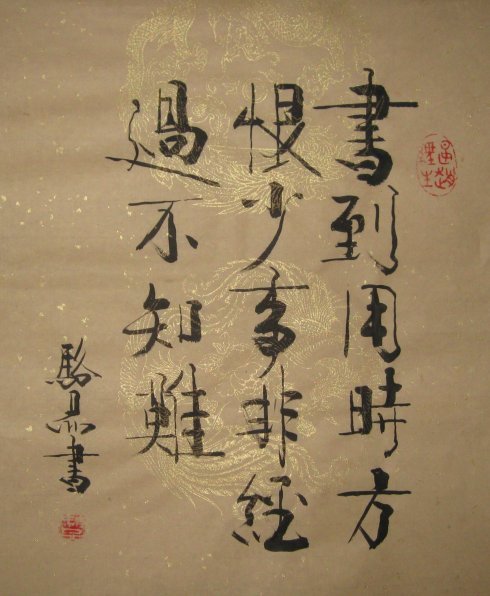 書到用時方
恨少事非經
過不知難
書